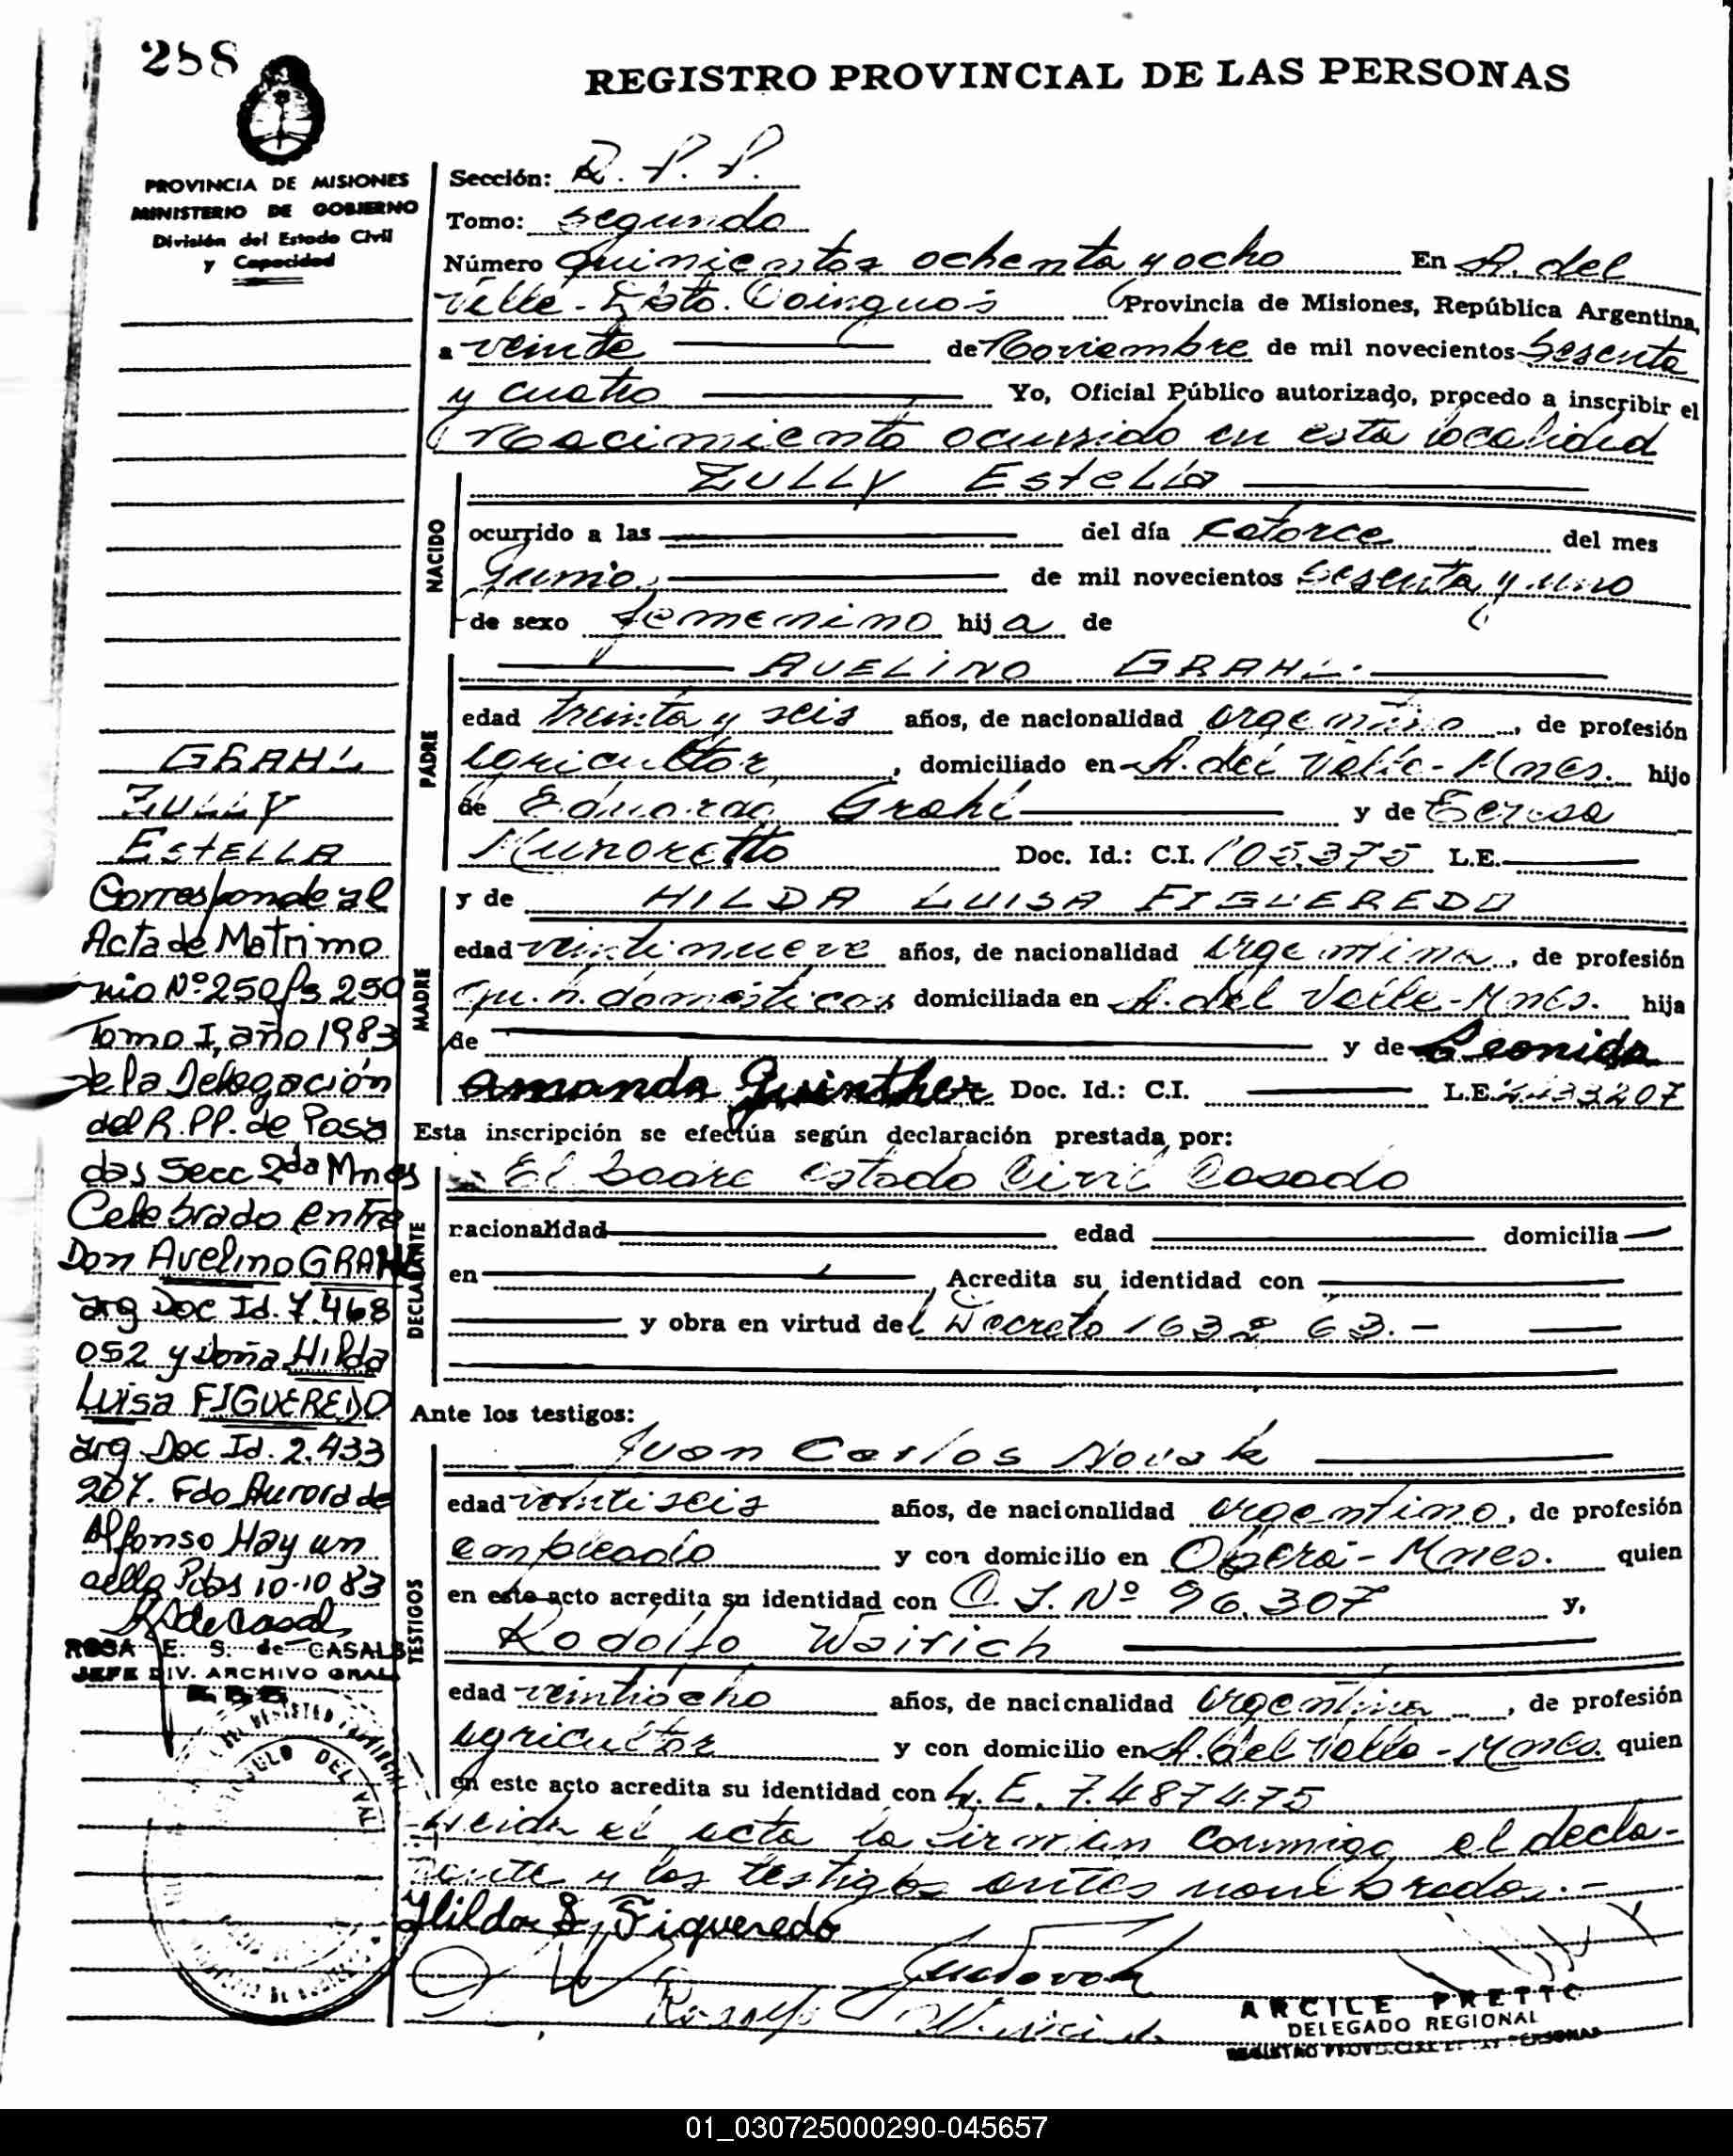 288
REGISTRO PROVINCIAL DE LAS PERSONAS
PROVINCIA DE MISIONES
MINISTERIO DE GOBIERNO
División del Estado Civil
y Capacidad
Sección: R. P. P.
Tomo: segundo
Número quinientos ochenta y ocho En A. del
Valle - Dpto. Cainguas Provincia de Misiones, República Argentina,
a veinte de Noviembre de mil novecientos sesenta
y cuatro Yo, Oficial Público autorizado, procedo a inscribir el
Nacimiento ocurrido en esta localidad
NACIDO
ZULLY EstELLA
ocurrido a las del día catorce del mes
Junio de mil novecientos sesenta y uno
de sexo femenino hija de
PADRE
AVELINO GRAHL
edad treinta y seis años, de nacionalidad argentino, de profesión
agricultor, domiciliado en A. del Valle - Mnes. hijo
de Eduardo Grahl y de Teresa
Munoretto Doc. Id.: C.I. 105.375 L.E.
MADRE
y de HILDA LUISA FIGUEREDO
edad veintinueve años, de nacionalidad argentina, de profesión
qu. h. domésticos domiciliada en A. del Valle - Mnes. hija
de y de Leonida
Amanda Guinther Doc. Id.: C.I. L.E. 2.433207
Esta inscripción se efectúa según declaración prestada por:
DECLARANTE
El padre estado Civil Casado
nacionalidad edad domicilia
en Acredita su identidad con
y obra en virtud del Decreto 1632 63.-
Ante los testigos:
TESTIGOS
Juan Carlos Novak
edad veintiseis años, de nacionalidad argentino, de profesión
empleado y con domicilio en Oberá - Mnes. quien
en este acto acredita su identidad con C. I. Nº 96.307 y,
Rodolfo Weirich
edad veintiocho años, de nacionalidad argentina, de profesión
agricultor y con domicilio en A. del Valle - Mnes. quien
en este acto acredita su identidad con L. E. 7.487475
Leida el acta la firman conmigo el decla-
rante y los testigos antes nombrados.-
Hilda L. Figueredo
Rodolfo Weirich
ARCILE PRETTO
DELEGADO REGIONAL
REGISTRO PROVINCIAL DE LAS PERSONAS
GRAHL
ZULLY
EstELLA
Corresponde al
Acta de Matrimo
nio Nº 250 fs 250
Tomo I, año 1983
de la Delegación
del R.PP. de Posa
das Secc 2da Mnes
Celebrado entre
Don Avelino GRAHL
arg Doc Id. 7.468
052 y doña Hilda
Luisa FIGUEREDO
arg Doc Id. 2.433
207. Fdo Aurora de
Alfonso Hay un
sello Pdas 10-10 83
ROSA E. S. de CASALS
JEFE DIV. ARCHIVO GRAL
01_030725000290-045657